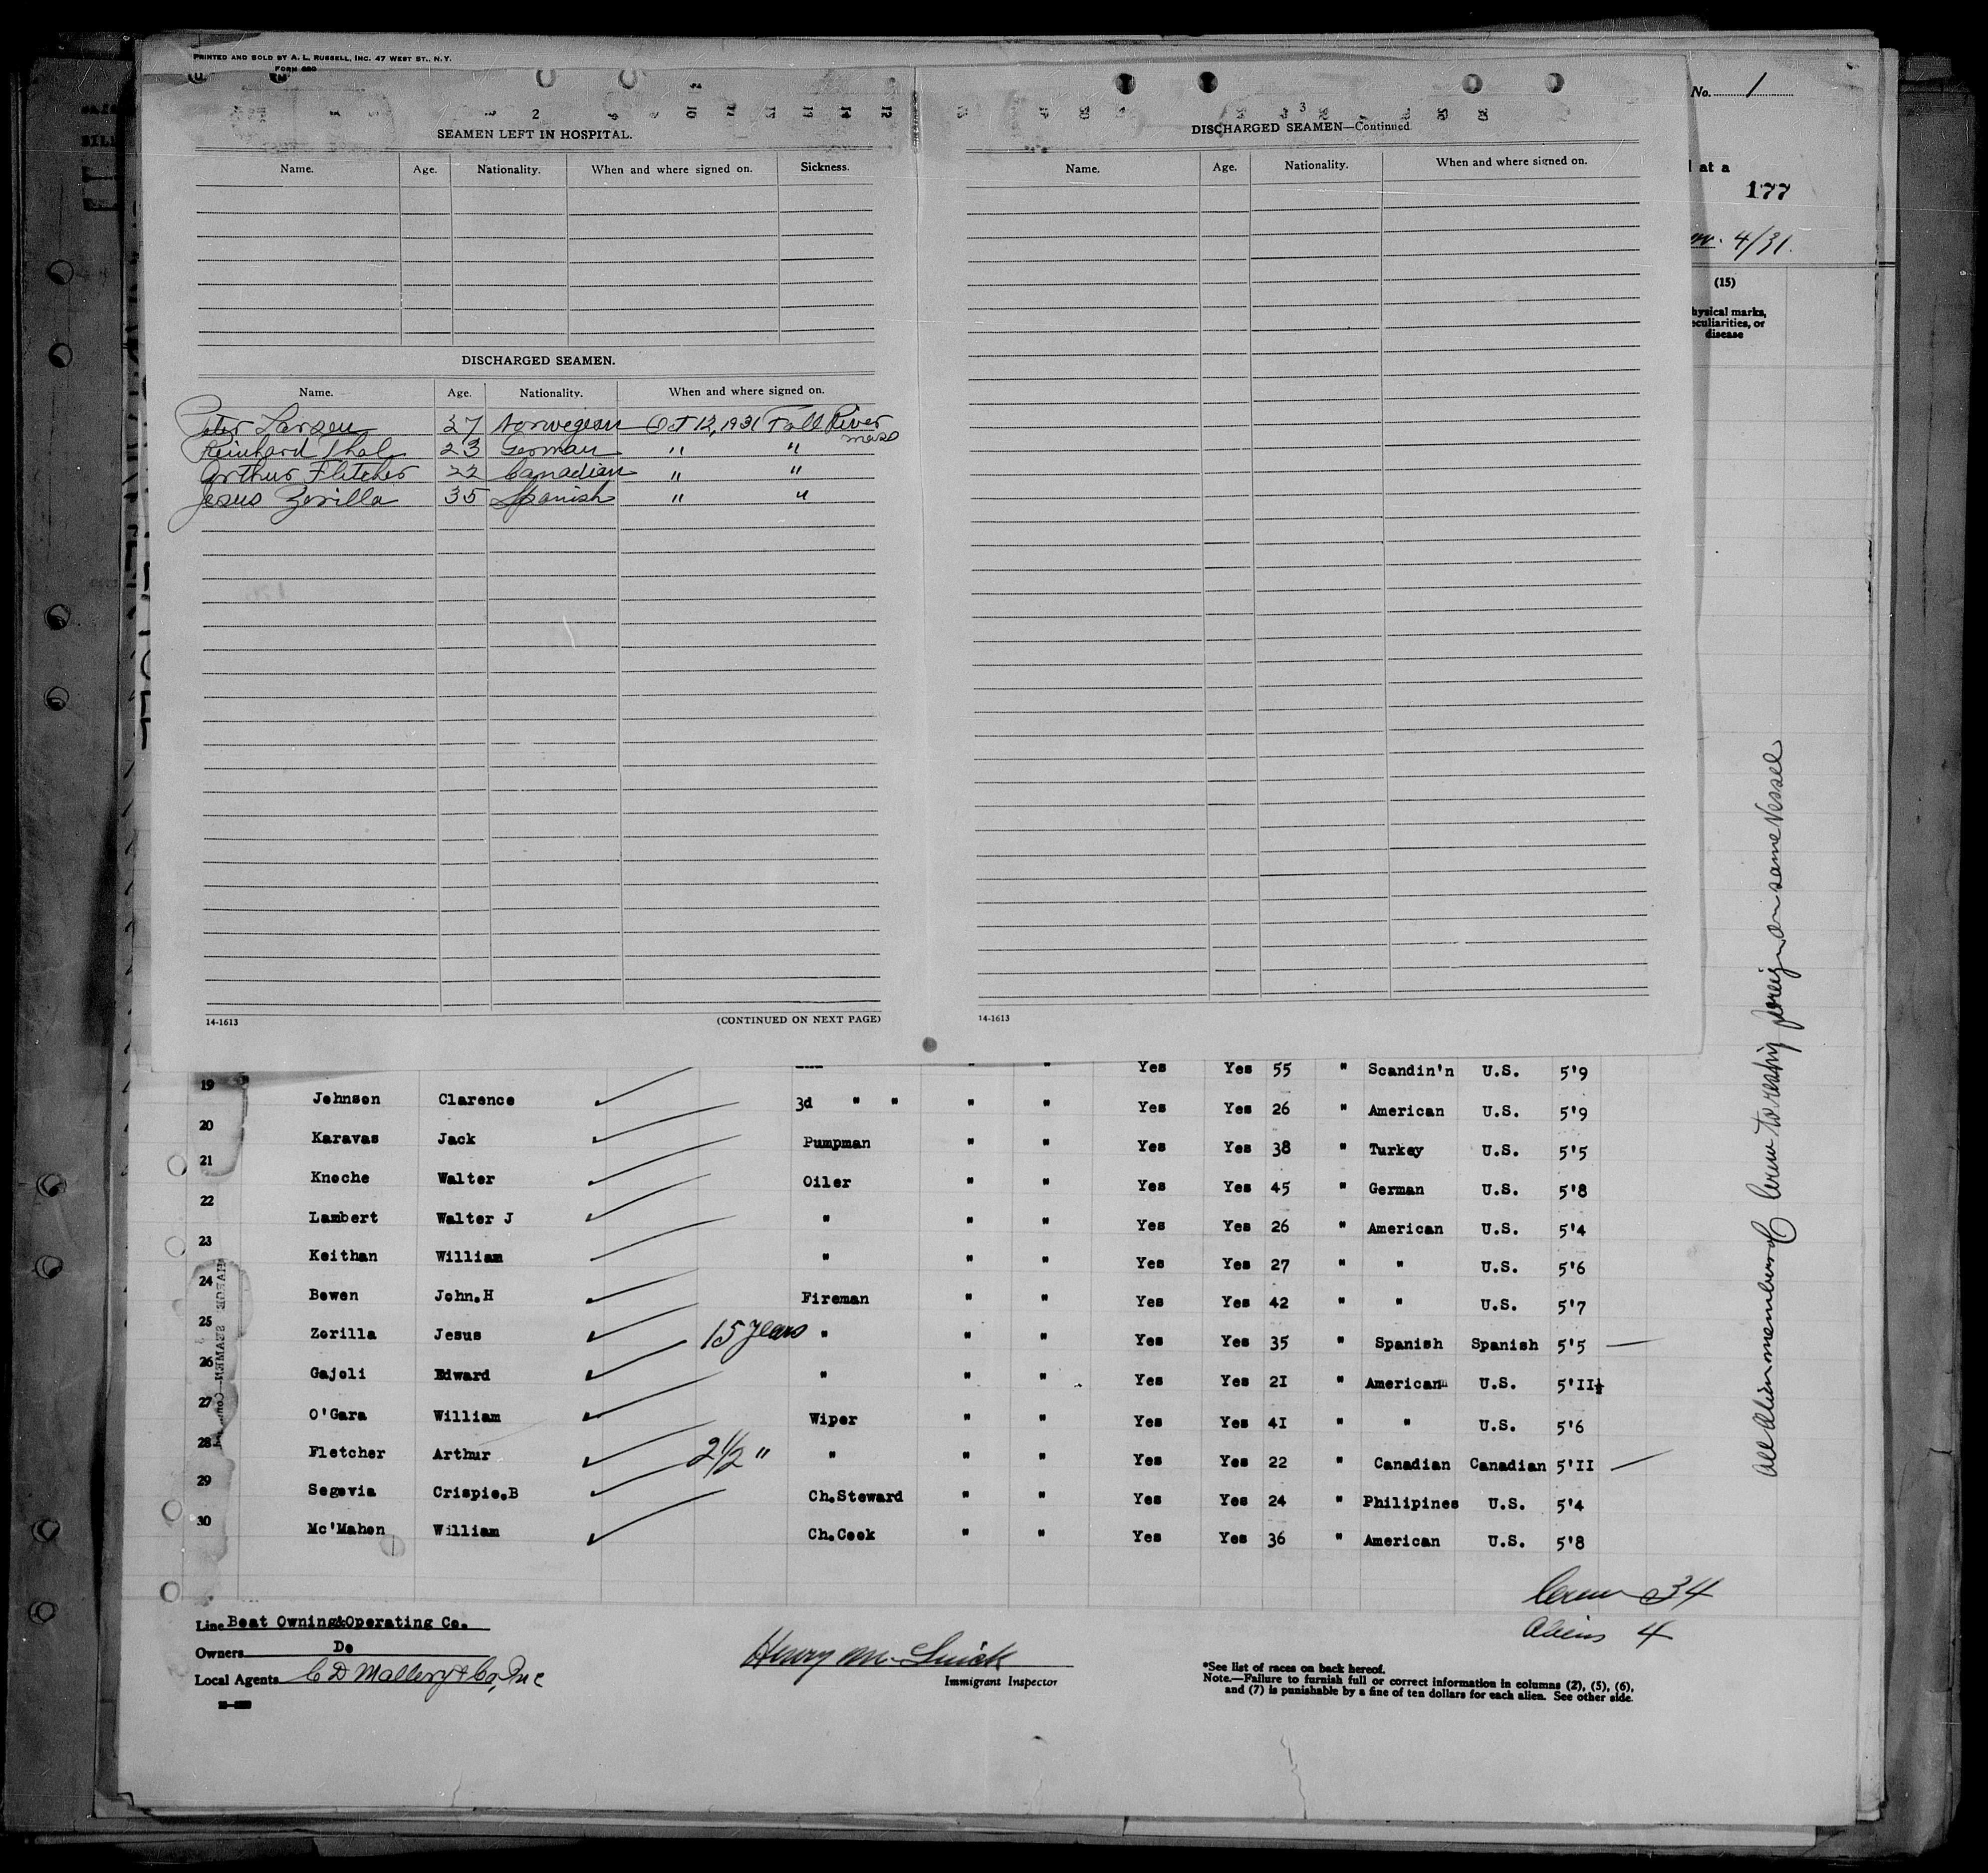 PRINTED AND SOLD BY A. L. RUSSELL, INC. 47 WEST ST., N.Y.
FORM 680
2
SEAMEN LEFT IN HOSPITAL.
Name. Age. Nationality. When and where signed on. Sickness.
DISCHARGED SEAMEN.
Name. Age. Nationality. When and where signed on.
Peter Larsen 27 Norwegian Oct 12, 1931 Fall River Mass
Reinhard Thal 23 German " "
Arthur Fletcher 22 Canadian " "
Jesus Zorilla 35 Spanish " "
14-1613 (CONTINUED ON NEXT PAGE)
3
DISCHARGED SEAMEN—Continued
Name. Age. Nationality. When and where signed on.
14-1613
No. 1
at a
177
4/31.
(15)
hysical marks,
eculiarities, or
disease
Yes Yes 55 " Scandin'n U.S. 5'9
19 Johnson Clarence 3d " " " " Yes Yes 26 " American U.S. 5'9
20 Karavas Jack Pumpman " " Yes Yes 38 " Turkey U.S. 5'5
21 Knoche Walter Oiler " " Yes Yes 45 " German U.S. 5'8
22 Lambert Walter J " " " Yes Yes 26 " American U.S. 5'4
23 Keithan William " " " Yes Yes 27 " " U.S. 5'6
24 Bowen John.H Fireman " " Yes Yes 42 " " U.S. 5'7
25 Zorilla Jesus 15 years " " " Yes Yes 35 " Spanish Spanish 5'5 —
26 Gajoli Edward " " " Yes Yes 2I " American U.S. 5'II½
27 O'Gara William Wiper " " Yes Yes 4I " " U.S. 5'6
28 Fletcher Arthur 2½ " " " " Yes Yes 22 " Canadian Canadian 5'II —
29 Segovia Crispie.B Ch.Steward " " Yes Yes 24 " Philipines U.S. 5'4
30 Mc'Mahon William Ch.Cook " " Yes Yes 36 " American U.S. 5'8
Crew 34
Aliens 4
All Alien members of Crew to reship foreign on same Vessel
Line Boat Owning&Operating Co.
Owners Do
Local Agents C D Mallory & Co, Inc
Henry
Immigrant Inspector
*See list of races on back hereof.
Note.—Failure to furnish full or correct information in columns (2), (5), (6),
and (7) is punishable by a fine of ten dollars for each alien. See other side.